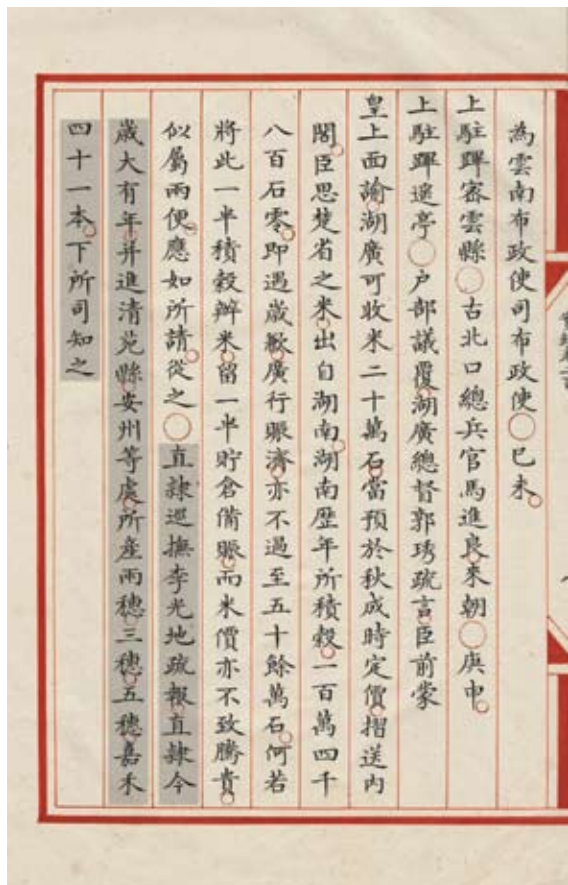 為雲南布政使司布政使○己未○
上駐蹕密雲縣○古北口總兵官馬進良來朝○庚申○
上駐蹕遙亭○户部議覆湖廣總督郭琇疏言○臣前蒙
皇上面諭○湖廣可收米二十萬石○當預於秋成時定價○摺送內
閣○臣思楚省之米○出自湖南○湖南歷年所積穀○一百萬四千
八百石零○即遇歲歉○廣行賑濟○亦不過至五十餘萬石○何若
將此一半積穀辦米○留一半貯倉備賑○而米價亦不致騰貴○
似屬兩便○應如所請○從之○直隸巡撫李光地疏報○直隸今
歲大有年○并進清苑縣○安州等處○所產兩穗○三穗○五穗嘉禾
四十一本○下所司知之